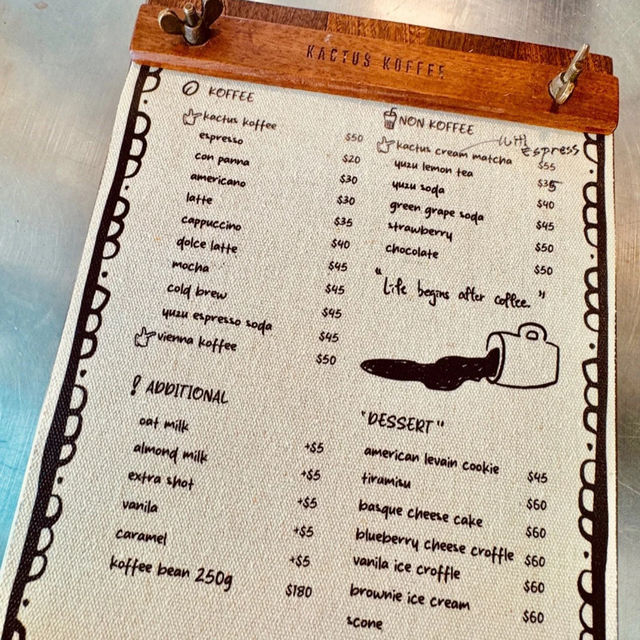 KACTUS KOFFEE
KOFFEE
kactus koffee $50
espresso $20
con panna $30
americano $30
latte $35
cappuccino $40
dolce latte $45
mocha $45
cold brew $45
yuzu espresso soda $45
vienna koffee $50
ADDITIONAL
oat milk +$5
almond milk +$5
extra shot +$5
vanila +$5
caramel +$5
koffee bean 250g $180
NON KOFFEE
with
Espress
kactus cream matcha $55
yuzu lemon tea $35
yuzu soda $40
green grape soda $45
strawberry $50
chocolate $50
"Life begins after coffee."
"DESSERT"
american levain cookie $45
tiramisu $60
basque cheese cake $60
blueberry cheese croffle $60
vanila ice croffle $60
brownie ice cream $60
scone